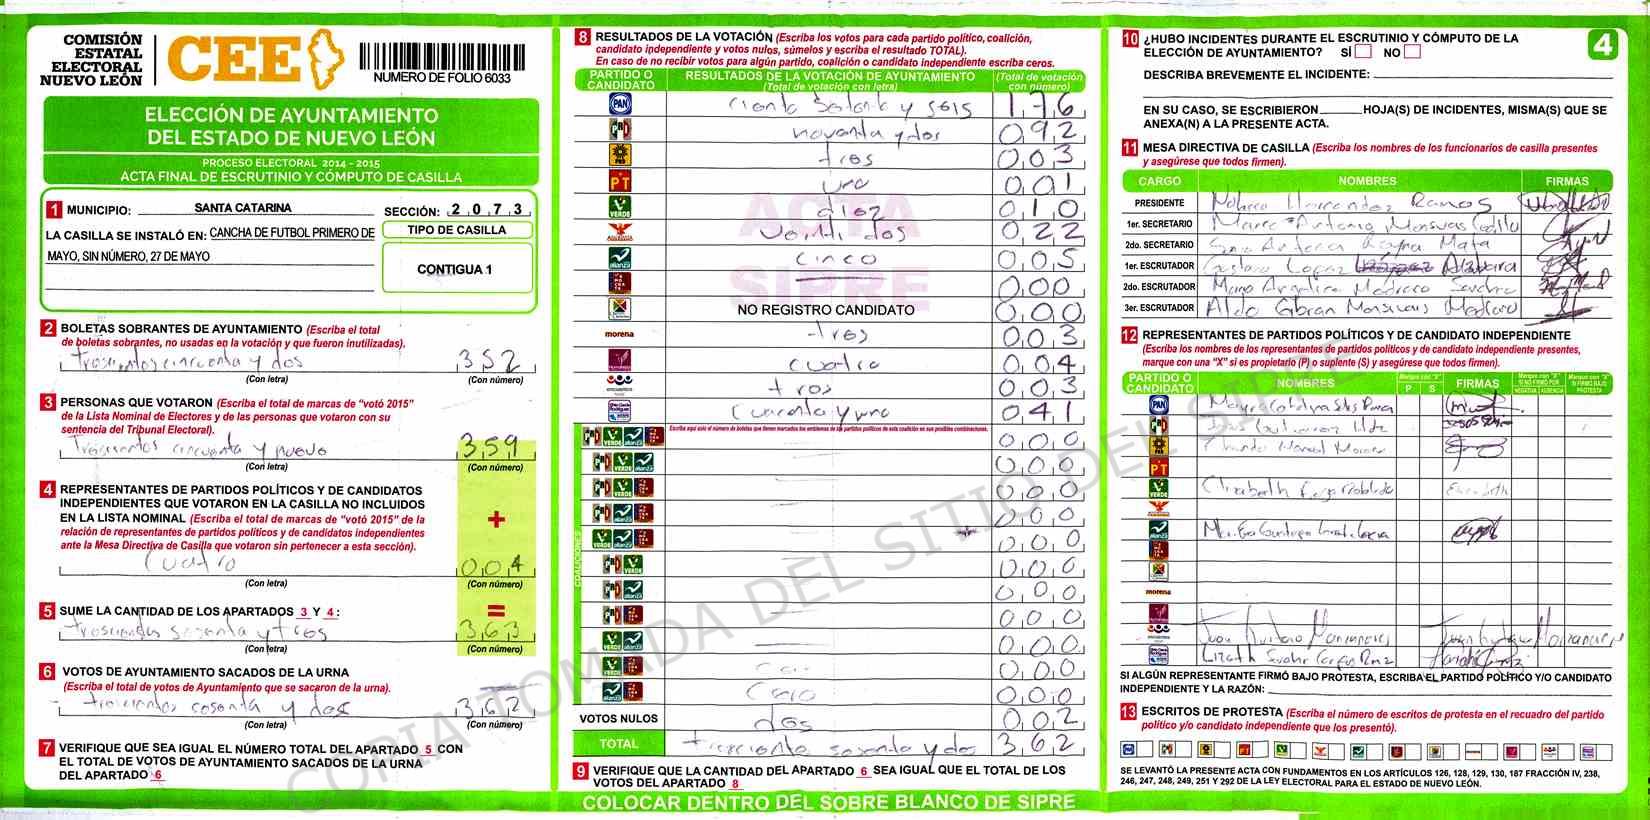 COMISIÓN
ESTATAL
ELECTORAL
NUEVO LEÓN
CEE
NUMERO DE FOLIO 6033
ELECCIÓN DE AYUNTAMIENTO
DEL ESTADO DE NUEVO LEÓN
PROCESO ELECTORAL 2014 - 2015
ACTA FINAL DE ESCRUTINIO Y CÓMPUTO DE CASILLA
1 MUNICIPIO: SANTA CATARINA SECCIÓN: 2 0 7 3
LA CASILLA SE INSTALÓ EN: CANCHA DE FUTBOL PRIMERO DE
MAYO, SIN NÚMERO, 27 DE MAYO
TIPO DE CASILLA
CONTIGUA 1
2 BOLETAS SOBRANTES DE AYUNTAMIENTO (Escriba el total
de boletas sobrantes, no usadas en la votación y que fueron inutilizadas).
trescientos cincuenta y dos 352
(Con letra) (Con número)
3 PERSONAS QUE VOTARON (Escriba el total de marcas de "votó 2015"
de la Lista Nominal de Electores y de las personas que votaron con su
sentencia del Tribunal Electoral).
Trescientos cincuenta y nueve 359
(Con letra) (Con número)
4 REPRESENTANTES DE PARTIDOS POLÍTICOS Y DE CANDIDATOS
INDEPENDIENTES QUE VOTARON EN LA CASILLA NO INCLUIDOS
EN LA LISTA NOMINAL (Escriba el total de marcas de "votó 2015" de la
relación de representantes de partidos políticos y de candidatos independientes
ante la Mesa Directiva de Casilla que votaron sin pertenecer a esta sección).
+
Cuatro 004
(Con letra) (Con número)
5 SUME LA CANTIDAD DE LOS APARTADOS 3 Y 4: =
trescientos sesenta y tres 363
(Con letra) (Con número)
6 VOTOS DE AYUNTAMIENTO SACADOS DE LA URNA
(Escriba el total de votos de Ayuntamiento que se sacaron de la urna).
trescientos sesenta y dos 362
(Con letra) (Con número)
7 VERIFIQUE QUE SEA IGUAL EL NÚMERO TOTAL DEL APARTADO 5 CON
EL TOTAL DE VOTOS DE AYUNTAMIENTO SACADOS DE LA URNA
DEL APARTADO 6
8 RESULTADOS DE LA VOTACIÓN (Escriba los votos para cada partido político, coalición,
candidato independiente y votos nulos, súmelos y escriba el resultado TOTAL).
En caso de no recibir votos para algún partido, coalición o candidato independiente escriba ceros.
PARTIDO O CANDIDATO RESULTADOS DE LA VOTACIÓN DE AYUNTAMIENTO (Total de votación con letra) (Total de votación con número)
PAN ciento setenta y seis 176
PRD noventa y dos 092
PRD tres 003
PT uno 001
VERDE diez 010
Veintidos 022
alianza cinco 005
000
NO REGISTRO CANDIDATO 000
morena tres 003
cuatro 004
tres 003
cuarenta y uno 041
Escriba aquí solo el número de boletas que tienen marcados los emblemas de los partidos políticos de esta coalición en sus posibles combinaciones.
COALICIONES
VERDE alianza 000
VERDE alianza 000
VERDE 000
alianza 000
VERDE alianza 000
VERDE 000
alianza 000
000
VERDE alianza 000
VERDE Cero 000
alianza Cero 000
VOTOS NULOS dos 002
TOTAL trescientos sesenta y dos 362
9 VERIFIQUE QUE LA CANTIDAD DEL APARTADO 6 SEA IGUAL QUE EL TOTAL DE LOS
VOTOS DEL APARTADO 8
COLOCAR DENTRO DEL SOBRE BLANCO DE SIPRE
ACTA
SIPRE
COPIA TOMADA DEL SITIO DEL SIPRE
4
10 ¿HUBO INCIDENTES DURANTE EL ESCRUTINIO Y CÓMPUTO DE LA
ELECCIÓN DE AYUNTAMIENTO? SÍ NO
DESCRIBA BREVEMENTE EL INCIDENTE:
EN SU CASO, SE ESCRIBIERON HOJA(S) DE INCIDENTES, MISMA(S) QUE SE
ANEXA(N) A LA PRESENTE ACTA.
11 MESA DIRECTIVA DE CASILLA (Escriba los nombres de los funcionarios de casilla presentes
y asegúrese que todos firmen).
CARGO NOMBRES FIRMAS
PRESIDENTE Hernandez Ramos
1er. SECRETARIO Marco Antonio Monsivais
2do. SECRETARIO Reyna Mata
1er. ESCRUTADOR Gustavo Lopez
2do. ESCRUTADOR Angelica
3er. ESCRUTADOR Aldo Gibran Monsivais Medrano
12 REPRESENTANTES DE PARTIDOS POLÍTICOS Y DE CANDIDATO INDEPENDIENTE
(Escriba los nombres de los representantes de partidos políticos y de candidato independiente presentes,
marque con una "X" si es propietario (P) o suplente (S) y asegúrese que todos firmen).
PARTIDO O CANDIDATO NOMBRES Marque con "X" P S FIRMAS Marque con "X" SI NO FIRMÓ POR NEGATIVA AUSENCIA Marque con "X" SI FIRMÓ BAJO PROTESTA
PAN
PRD
PT
VERDE Elizabeth Elizabeth
alianza
morena
Juan
Lizeth
SI ALGÚN REPRESENTANTE FIRMÓ BAJO PROTESTA, ESCRIBA EL PARTIDO POLÍTICO Y/O CANDIDATO
INDEPENDIENTE Y LA RAZÓN:
13 ESCRITOS DE PROTESTA (Escriba el número de escritos de protesta en el recuadro del partido
político y/o candidato independiente que los presentó).
SE LEVANTÓ LA PRESENTE ACTA CON FUNDAMENTOS EN LOS ARTÍCULOS 126, 128, 129, 130, 187 FRACCIÓN IV, 238,
246, 247, 248, 249, 251 Y 292 DE LA LEY ELECTORAL PARA EL ESTADO DE NUEVO LEÓN.